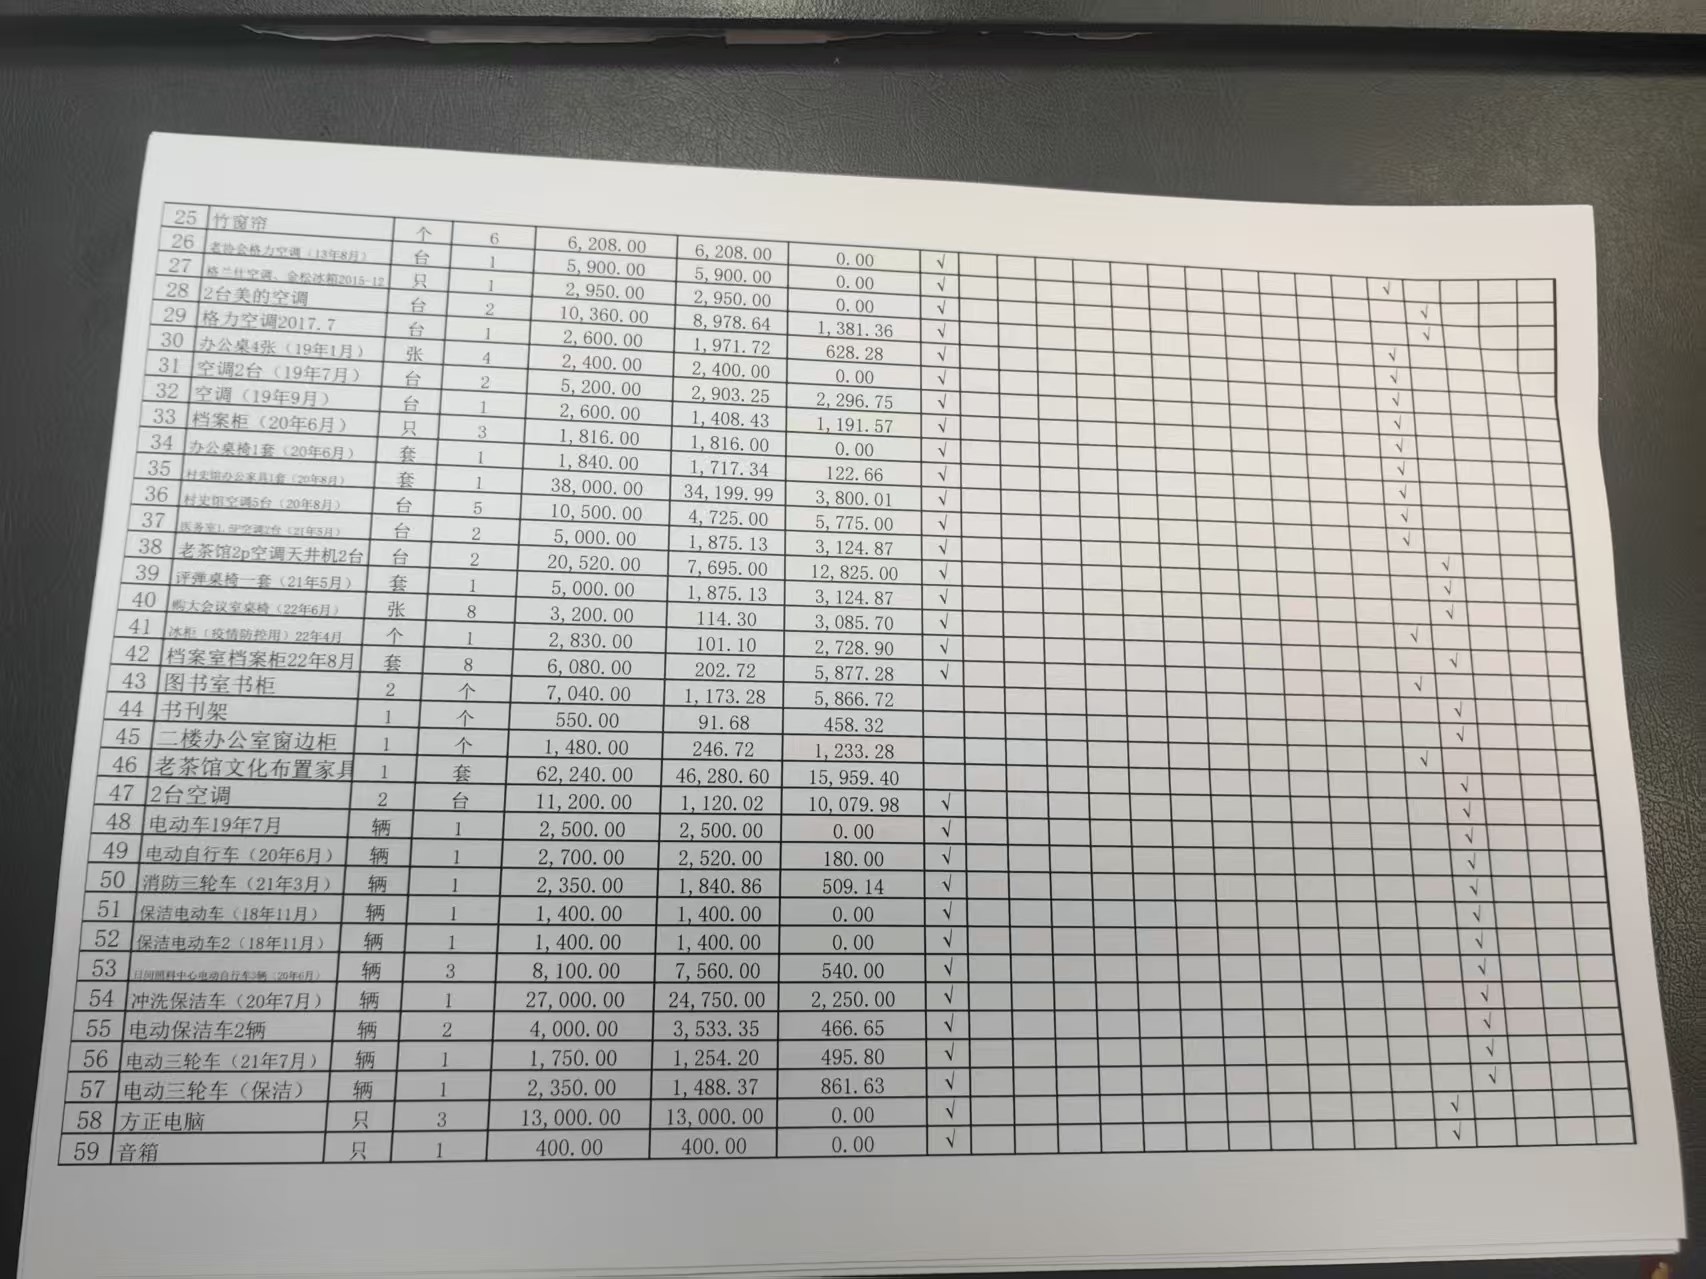 25 竹窗帘 个 6 6,208.00 6,208.00 0.00 √ √
26 老协会格力空调（13年8月） 台 1 5,900.00 5,900.00 0.00 √ √
27 格兰仕空调、金松冰箱2015-12 只 1 2,950.00 2,950.00 0.00 √ √
28 2台美的空调 台 2 10,360.00 8,978.64 1,381.36 √ √
29 格力空调2017.7 台 1 2,600.00 1,971.72 628.28 √ √
30 办公桌4张（19年1月） 张 4 2,400.00 2,400.00 0.00 √ √
31 空调2台（19年7月） 台 2 5,200.00 2,903.25 2,296.75 √ √
32 空调（19年9月） 台 1 2,600.00 1,408.43 1,191.57 √ √
33 档案柜（20年6月） 只 3 1,816.00 1,816.00 0.00 √ √
34 办公桌椅1套（20年6月） 套 1 1,840.00 1,717.34 122.66 √ √
35 村史馆办公家具1套（20年8月） 套 1 38,000.00 34,199.99 3,800.01 √ √
36 村史馆空调5台（20年8月） 台 5 10,500.00 4,725.00 5,775.00 √ √
37 医务室1.5P空调2台（21年5月） 台 2 5,000.00 1,875.13 3,124.87 √ √
38 老茶馆2p空调天井机2台 台 2 20,520.00 7,695.00 12,825.00 √ √
39 评弹桌椅一套（21年5月） 套 1 5,000.00 1,875.13 3,124.87 √ √
40 购大会议室桌椅（22年6月） 张 8 3,200.00 114.30 3,085.70 √ √
41 冰柜（疫情防控用）22年4月 个 1 2,830.00 101.10 2,728.90 √ √
42 档案室档案柜22年8月 套 8 6,080.00 202.72 5,877.28 √ √
43 图书室书柜 2 个 7,040.00 1,173.28 5,866.72 √
44 书刊架 1 个 550.00 91.68 458.32 √
45 二楼办公室窗边柜 1 个 1,480.00 246.72 1,233.28 √
46 老茶馆文化布置家具 1 套 62,240.00 46,280.60 15,959.40 √
47 2台空调 2 台 11,200.00 1,120.02 10,079.98 √ √
48 电动车19年7月 辆 1 2,500.00 2,500.00 0.00 √ √
49 电动自行车（20年6月） 辆 1 2,700.00 2,520.00 180.00 √ √
50 消防三轮车（21年3月） 辆 1 2,350.00 1,840.86 509.14 √ √
51 保洁电动车（18年11月） 辆 1 1,400.00 1,400.00 0.00 √ √
52 保洁电动车2（18年11月） 辆 1 1,400.00 1,400.00 0.00 √ √
53 日间照料中心电动自行车3辆（20年6月） 辆 3 8,100.00 7,560.00 540.00 √ √
54 冲洗保洁车（20年7月） 辆 1 27,000.00 24,750.00 2,250.00 √ √
55 电动保洁车2辆 辆 2 4,000.00 3,533.35 466.65 √ √
56 电动三轮车（21年7月） 辆 1 1,750.00 1,254.20 495.80 √ √
57 电动三轮车（保洁） 辆 1 2,350.00 1,488.37 861.63 √ √
58 方正电脑 只 3 13,000.00 13,000.00 0.00 √ √
59 音箱 只 1 400.00 400.00 0.00 √ √